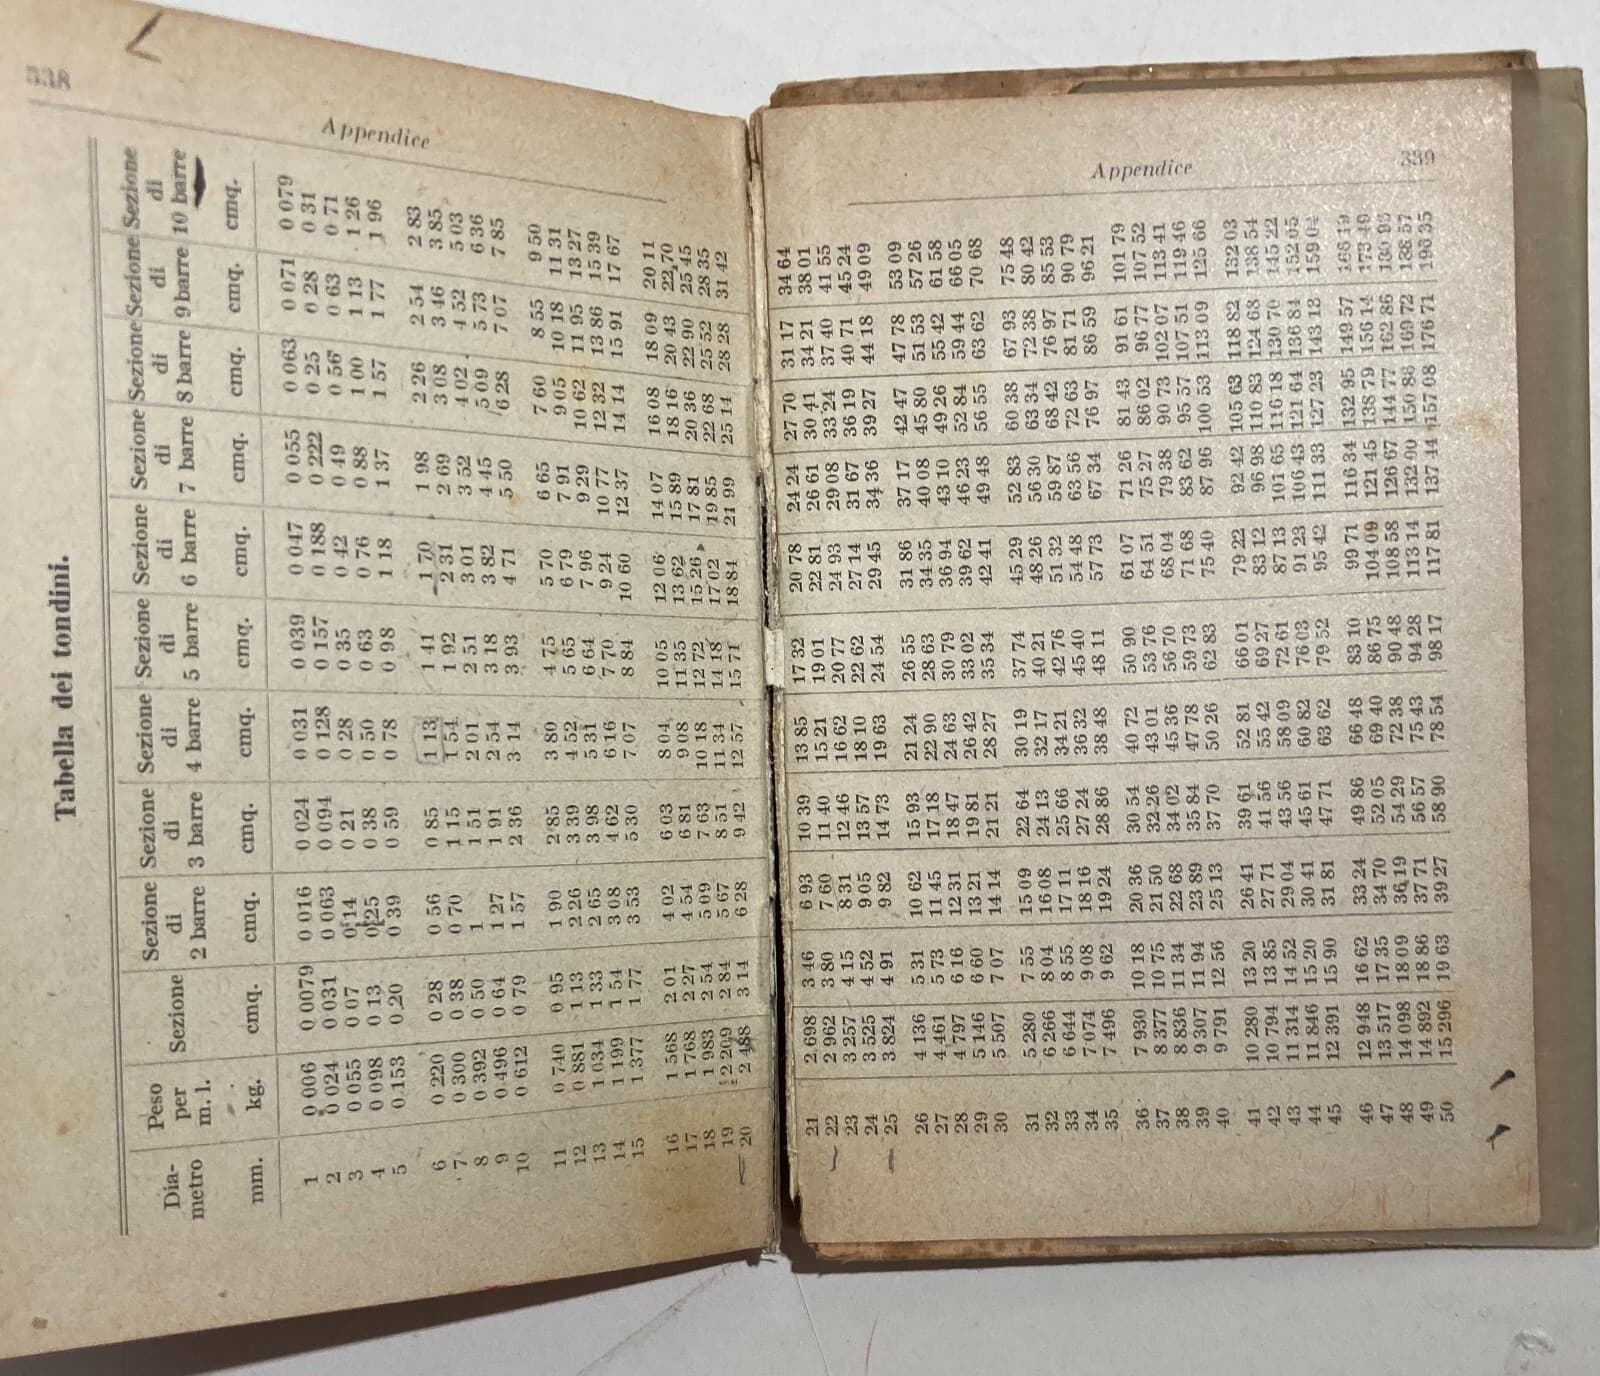 338
Appendice
Tabella dei tondini.
Dia-metro Peso per m. l. Sezione Sezione di 2 barre Sezione di 3 barre Sezione di 4 barre Sezione di 5 barre Sezione di 6 barre Sezione di 7 barre Sezione di 8 barre Sezione di 9 barre Sezione di 10 barre
mm. kg. cmq. cmq. cmq. cmq. cmq. cmq. cmq. cmq. cmq. cmq.
1 0 006 0 0079 0 016 0 024 0 031 0 039 0 047 0 055 0 063 0 071 0 079
2 0 024 0 031 0 063 0 094 0 128 0 157 0 188 0 222 0 25 0 28 0 31
3 0 055 0 07 0 14 0 21 0 28 0 35 0 42 0 49 0 56 0 63 0 71
4 0 098 0 13 0 25 0 38 0 50 0 63 0 76 0 88 1 00 1 13 1 26
5 0 153 0 20 0 39 0 59 0 78 0 98 1 18 1 37 1 57 1 77 1 96
6 0 220 0 28 0 56 0 85 1 13 1 41 1 70 1 98 2 26 2 54 2 83
7 0 300 0 38 0 70 1 15 1 54 1 92 2 31 2 69 3 08 3 46 3 85
8 0 392 0 50 1 1 51 2 01 2 51 3 01 3 52 4 02 4 52 5 03
9 0 496 0 64 1 27 1 91 2 54 3 18 3 82 4 45 5 09 5 73 6 36
10 0 612 0 79 1 57 2 36 3 14 3 93 4 71 5 50 6 28 7 07 7 85
11 0 740 0 95 1 90 2 85 3 80 4 75 5 70 6 65 7 60 8 55 9 50
12 0 881 1 13 2 26 3 39 4 52 5 65 6 79 7 91 9 05 10 18 11 31
13 1 034 1 33 2 65 3 98 5 31 6 64 7 96 9 29 10 62 11 95 13 27
14 1 199 1 54 3 08 4 62 6 16 7 70 9 24 10 77 12 32 13 86 15 39
15 1 377 1 77 3 53 5 30 7 07 8 84 10 60 12 37 14 14 15 91 17 67
16 1 568 2 01 4 02 6 03 8 04 10 05 12 06 14 07 16 08 18 09 20 11
17 1 768 2 27 4 54 6 81 9 08 11 35 13 62 15 89 18 16 20 43 22 70
18 1 983 2 54 5 09 7 63 10 18 12 72 15 26 17 81 20 36 22 90 25 45
19 2 209 2 84 5 67 8 51 11 34 14 18 17 02 19 85 22 68 25 52 28 35
20 2 488 3 14 6 28 9 42 12 57 15 71 18 84 21 99 25 14 28 28 31 42
Appendice
339
21 2 698 3 46 6 93 10 39 13 85 17 32 20 78 24 24 27 70 31 17 34 64
22 2 962 3 80 7 60 11 40 15 21 19 01 22 81 26 61 30 41 34 21 38 01
23 3 257 4 15 8 31 12 46 16 62 20 77 24 93 29 08 33 24 37 40 41 55
24 3 525 4 52 9 05 13 57 18 10 22 62 27 14 31 67 36 19 40 71 45 24
25 3 824 4 91 9 82 14 73 19 63 24 54 29 45 34 36 39 27 44 18 49 09
26 4 136 5 31 10 62 15 93 21 24 26 55 31 86 37 17 42 47 47 78 53 09
27 4 461 5 73 11 45 17 18 22 90 28 63 34 35 40 08 45 80 51 53 57 26
28 4 797 6 16 12 31 18 47 24 63 30 79 36 94 43 10 49 26 55 42 61 58
29 5 146 6 60 13 21 19 81 26 42 33 02 39 62 46 23 52 84 59 44 66 05
30 5 507 7 07 14 14 21 21 28 27 35 34 42 41 49 48 56 55 63 62 70 68
31 5 280 7 55 15 09 22 64 30 19 37 74 45 29 52 83 60 38 67 93 75 48
32 6 266 8 04 16 08 24 13 32 17 40 21 48 26 56 30 63 34 72 38 80 42
33 6 644 8 55 17 11 25 66 34 21 42 76 51 32 59 87 68 42 76 97 85 53
34 7 074 9 08 18 16 27 24 36 32 45 40 54 48 63 56 72 63 81 71 90 79
35 7 496 9 62 19 24 28 86 38 48 48 11 57 73 67 34 76 97 86 59 96 21
36 7 930 10 18 20 36 30 54 40 72 50 90 61 07 71 26 81 43 91 61 101 79
37 8 377 10 75 21 50 32 26 43 01 53 76 64 51 75 27 86 02 96 77 107 52
38 8 836 11 34 22 68 34 02 45 36 56 70 68 04 79 38 90 73 102 07 113 41
39 9 307 11 94 23 89 35 84 47 78 59 73 71 68 83 62 95 57 107 51 119 46
40 9 791 12 56 25 13 37 70 50 26 62 83 75 40 87 96 100 53 113 09 125 66
41 10 280 13 20 26 41 39 61 52 81 66 01 79 22 92 42 105 63 118 82 132 03
42 10 794 13 85 27 71 41 56 55 42 69 27 83 12 96 98 110 83 124 68 138 54
43 11 314 14 52 29 04 43 56 58 09 72 61 87 13 101 65 116 18 130 70 145 22
44 11 846 15 20 30 41 45 61 60 82 76 03 91 23 106 43 121 64 136 84 152 05
45 12 391 15 90 31 81 47 71 63 62 79 52 95 42 111 33 127 23 143 13 159 04
46 12 948 16 62 33 24 49 86 66 48 83 10 99 71 116 34 132 95 149 57 166 19
47 13 517 17 35 34 70 52 05 69 40 86 75 104 09 121 45 138 79 156 14 173 49
48 14 098 18 09 36 19 54 29 72 38 90 48 108 58 126 67 144 77 162 86
49 14 892 18 86 37 71 56 57 75 43 94 28 113 14 132 00 150 86 169 72 188 57
50 15 296 19 63 39 27 58 90 78 54 98 17 117 81 137 44 157 08 176 71 196 35